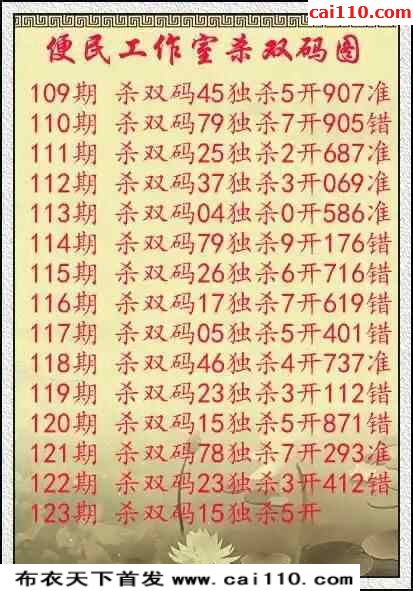 cai110.com
便民工作室杀双码图
109期 杀双码45独杀5开907准
110期 杀双码79独杀7开905错
111期 杀双码25独杀2开687准
112期 杀双码37独杀3开069准
113期 杀双码04独杀0开586准
114期 杀双码79独杀9开176错
115期 杀双码26独杀6开716错
116期 杀双码17独杀7开619错
117期 杀双码05独杀5开401错
118期 杀双码46独杀4开737准
119期 杀双码23独杀3开112错
120期 杀双码15独杀5开871错
121期 杀双码78独杀7开293准
122期 杀双码23独杀3开412错
123期 杀双码15独杀5开
布衣天下首发 www.cai110.com